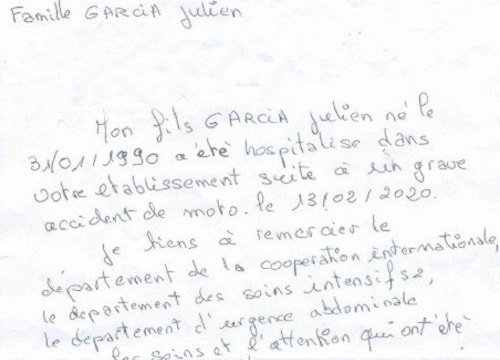 Famille GARCIA Julien
Mon fils GARCIA Julien né le
31/01/1990 a été hospitalise dans
votre etablissement suite à un grave
accident de moto. le 13/02/2020.
Je tiens à remercier le
département de la cooperation internationale,
le departement des soins intensifs 2,
le département d'urgence abdominale
les soins et l'attention qui ont été